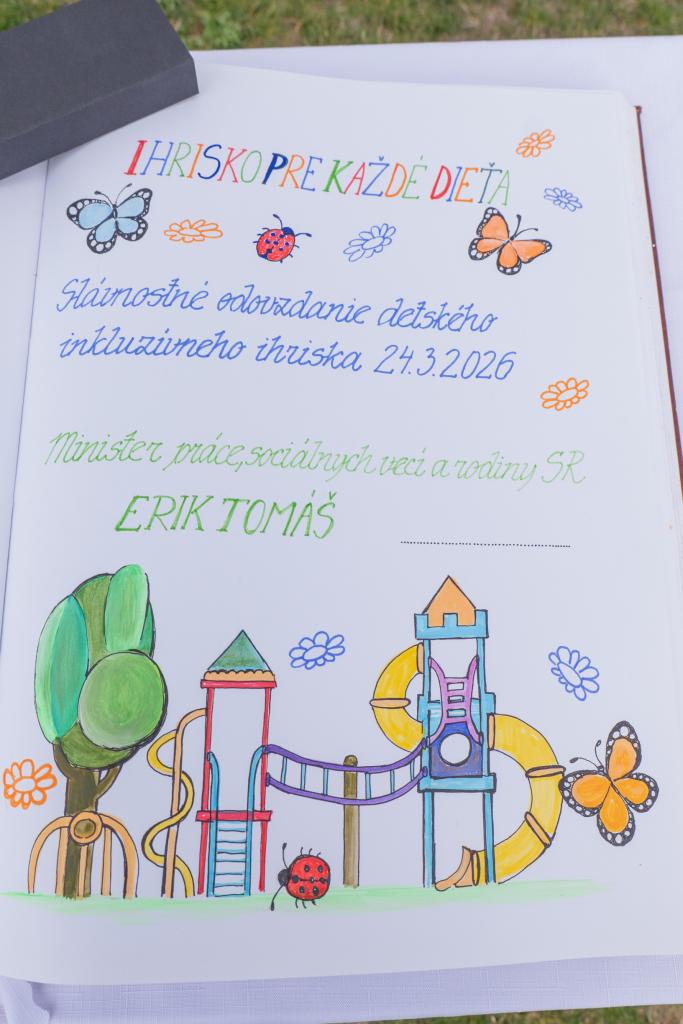 IHRISKO PRE KAŽDÉ DIEŤA
Slávnostné odovzdanie detského
inkluzívneho ihriska 24.3.2026
Minister práce, sociálnych vecí a rodiny SR
ERIK TOMÁŠ